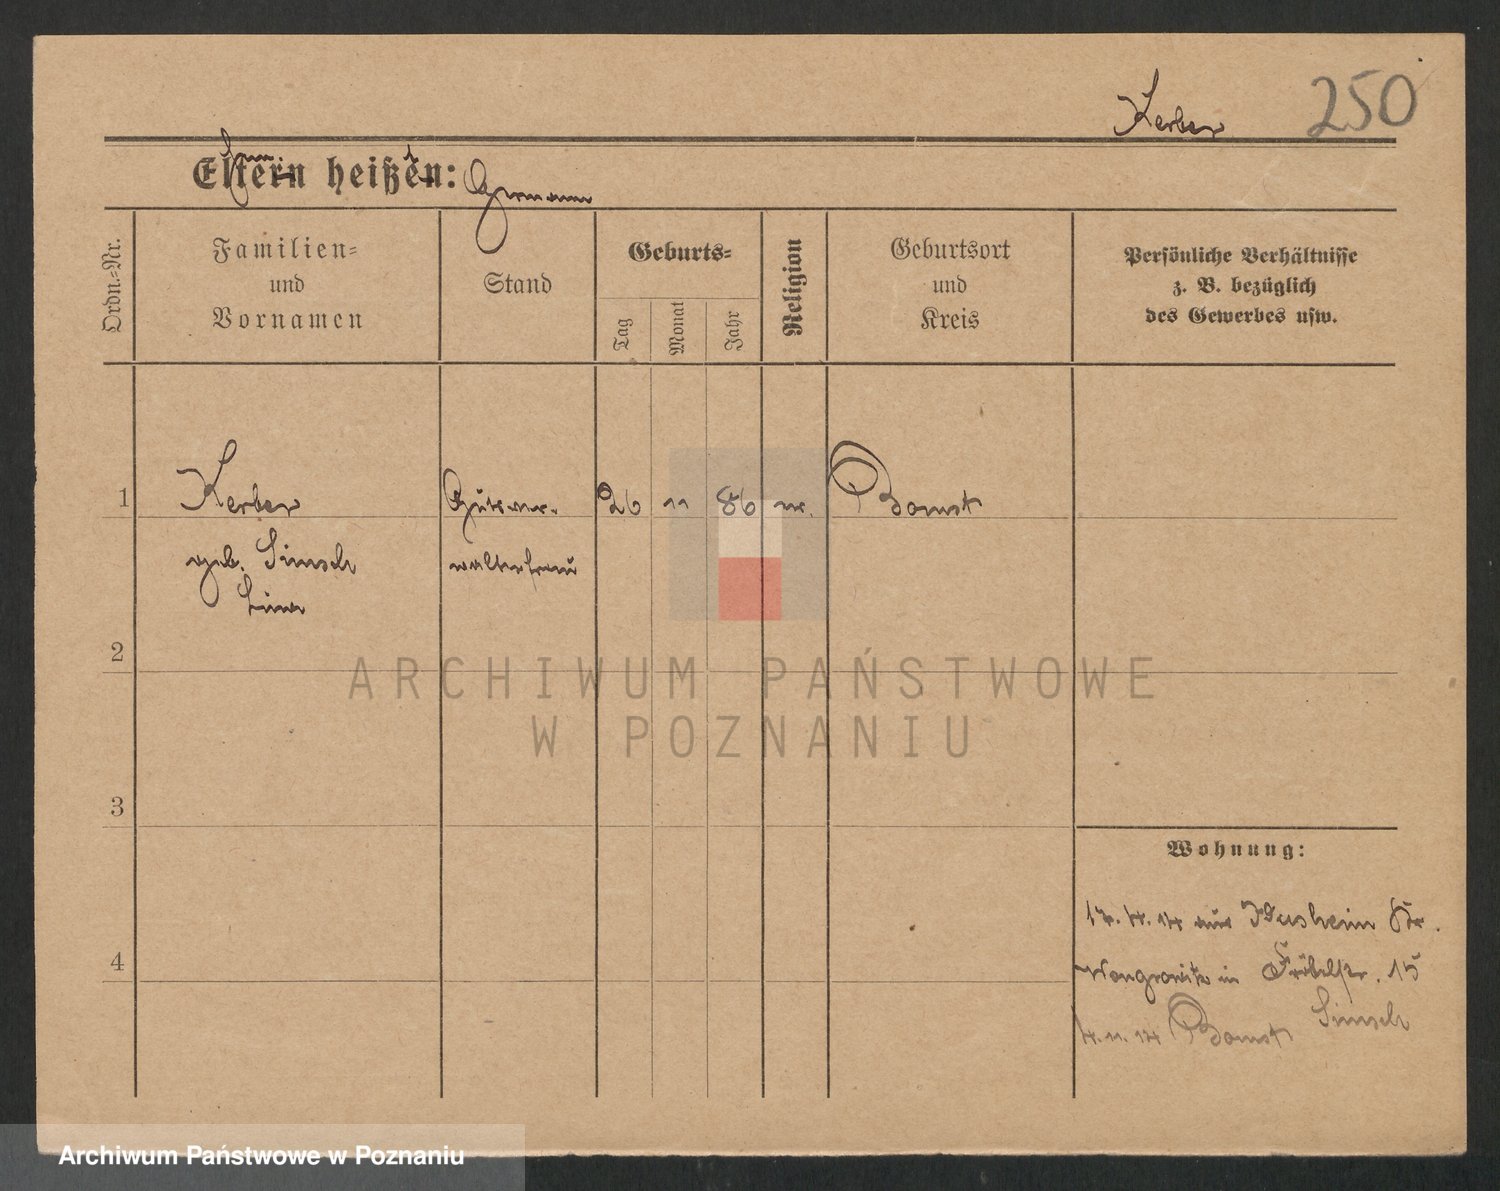 Kerber 250
Eltern heißen: Hermann
Ordn.-Nr.
Familien-
und
Vornamen
Stand
Geburts-
Tag
Monat
Jahr
Religion
Geburtsort
und
Kreis
Persönliche Verhältnisse
z. B. bezüglich
des Gewerbes usw.
1 Kerber Gutsver- 26 11 86 ev. Bomst
geb. Simsch walterfrau
2
ARCHIWUM PAŃSTWOWE
W POZNANIU
3
Wohnung:
4
17.4.14 aus Kr.
Wongrowitz in Fröbelstr. 15
Simsch
4.11.14 Bomst
Archiwum Państwowe w Poznaniu